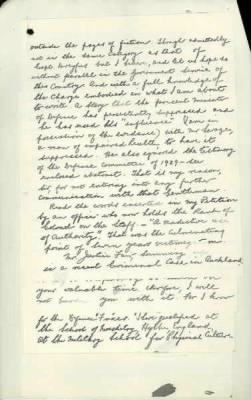 outside the pages of fiction. Though admittedly
not in the same category as that of
Capt. Dreyfus but I swear, and let us hope is
without parallel in the Government Service of
this Country. And with a full knowledge of
the charge embodied in what I am about
to write. A story that the present Minister
of Defence has persistently suppressed and
he has used the "suppression" (am in
possession of the evidence) with Mr
a man of impaired health, to have it
suppressed. He also ignores the testimony
of the Defence Committee of 1929 - see
enclosed abstract. That is my reason,
Sir, for not entering into any further
communication with that Gentleman.
Read the words inserted in my Petition
by an officer who now holds the Rank of
Colonel on the Staff - "A malicious use
of Authority". That was the culminating
point of seven years victimiz
Mr Justice Fair summing
in a recent Criminal Case in Auckland
your valuable time therefore, I will
not you with it. For I now
for the Defence Forces. I also qualified at
the School of Musketry, Hythe England,
at the Military School for Physical Culture